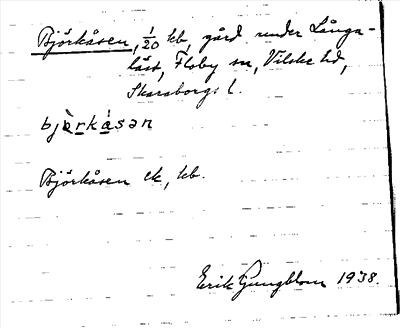 Björkåsen, 1/20 kb, gård under Långa-
låst, Floby sn, Vilske hd,
Skaraborgs l.
bjò̀rkåsan
Björkåsen ek, kb.
Erik Ljungblom 1938.